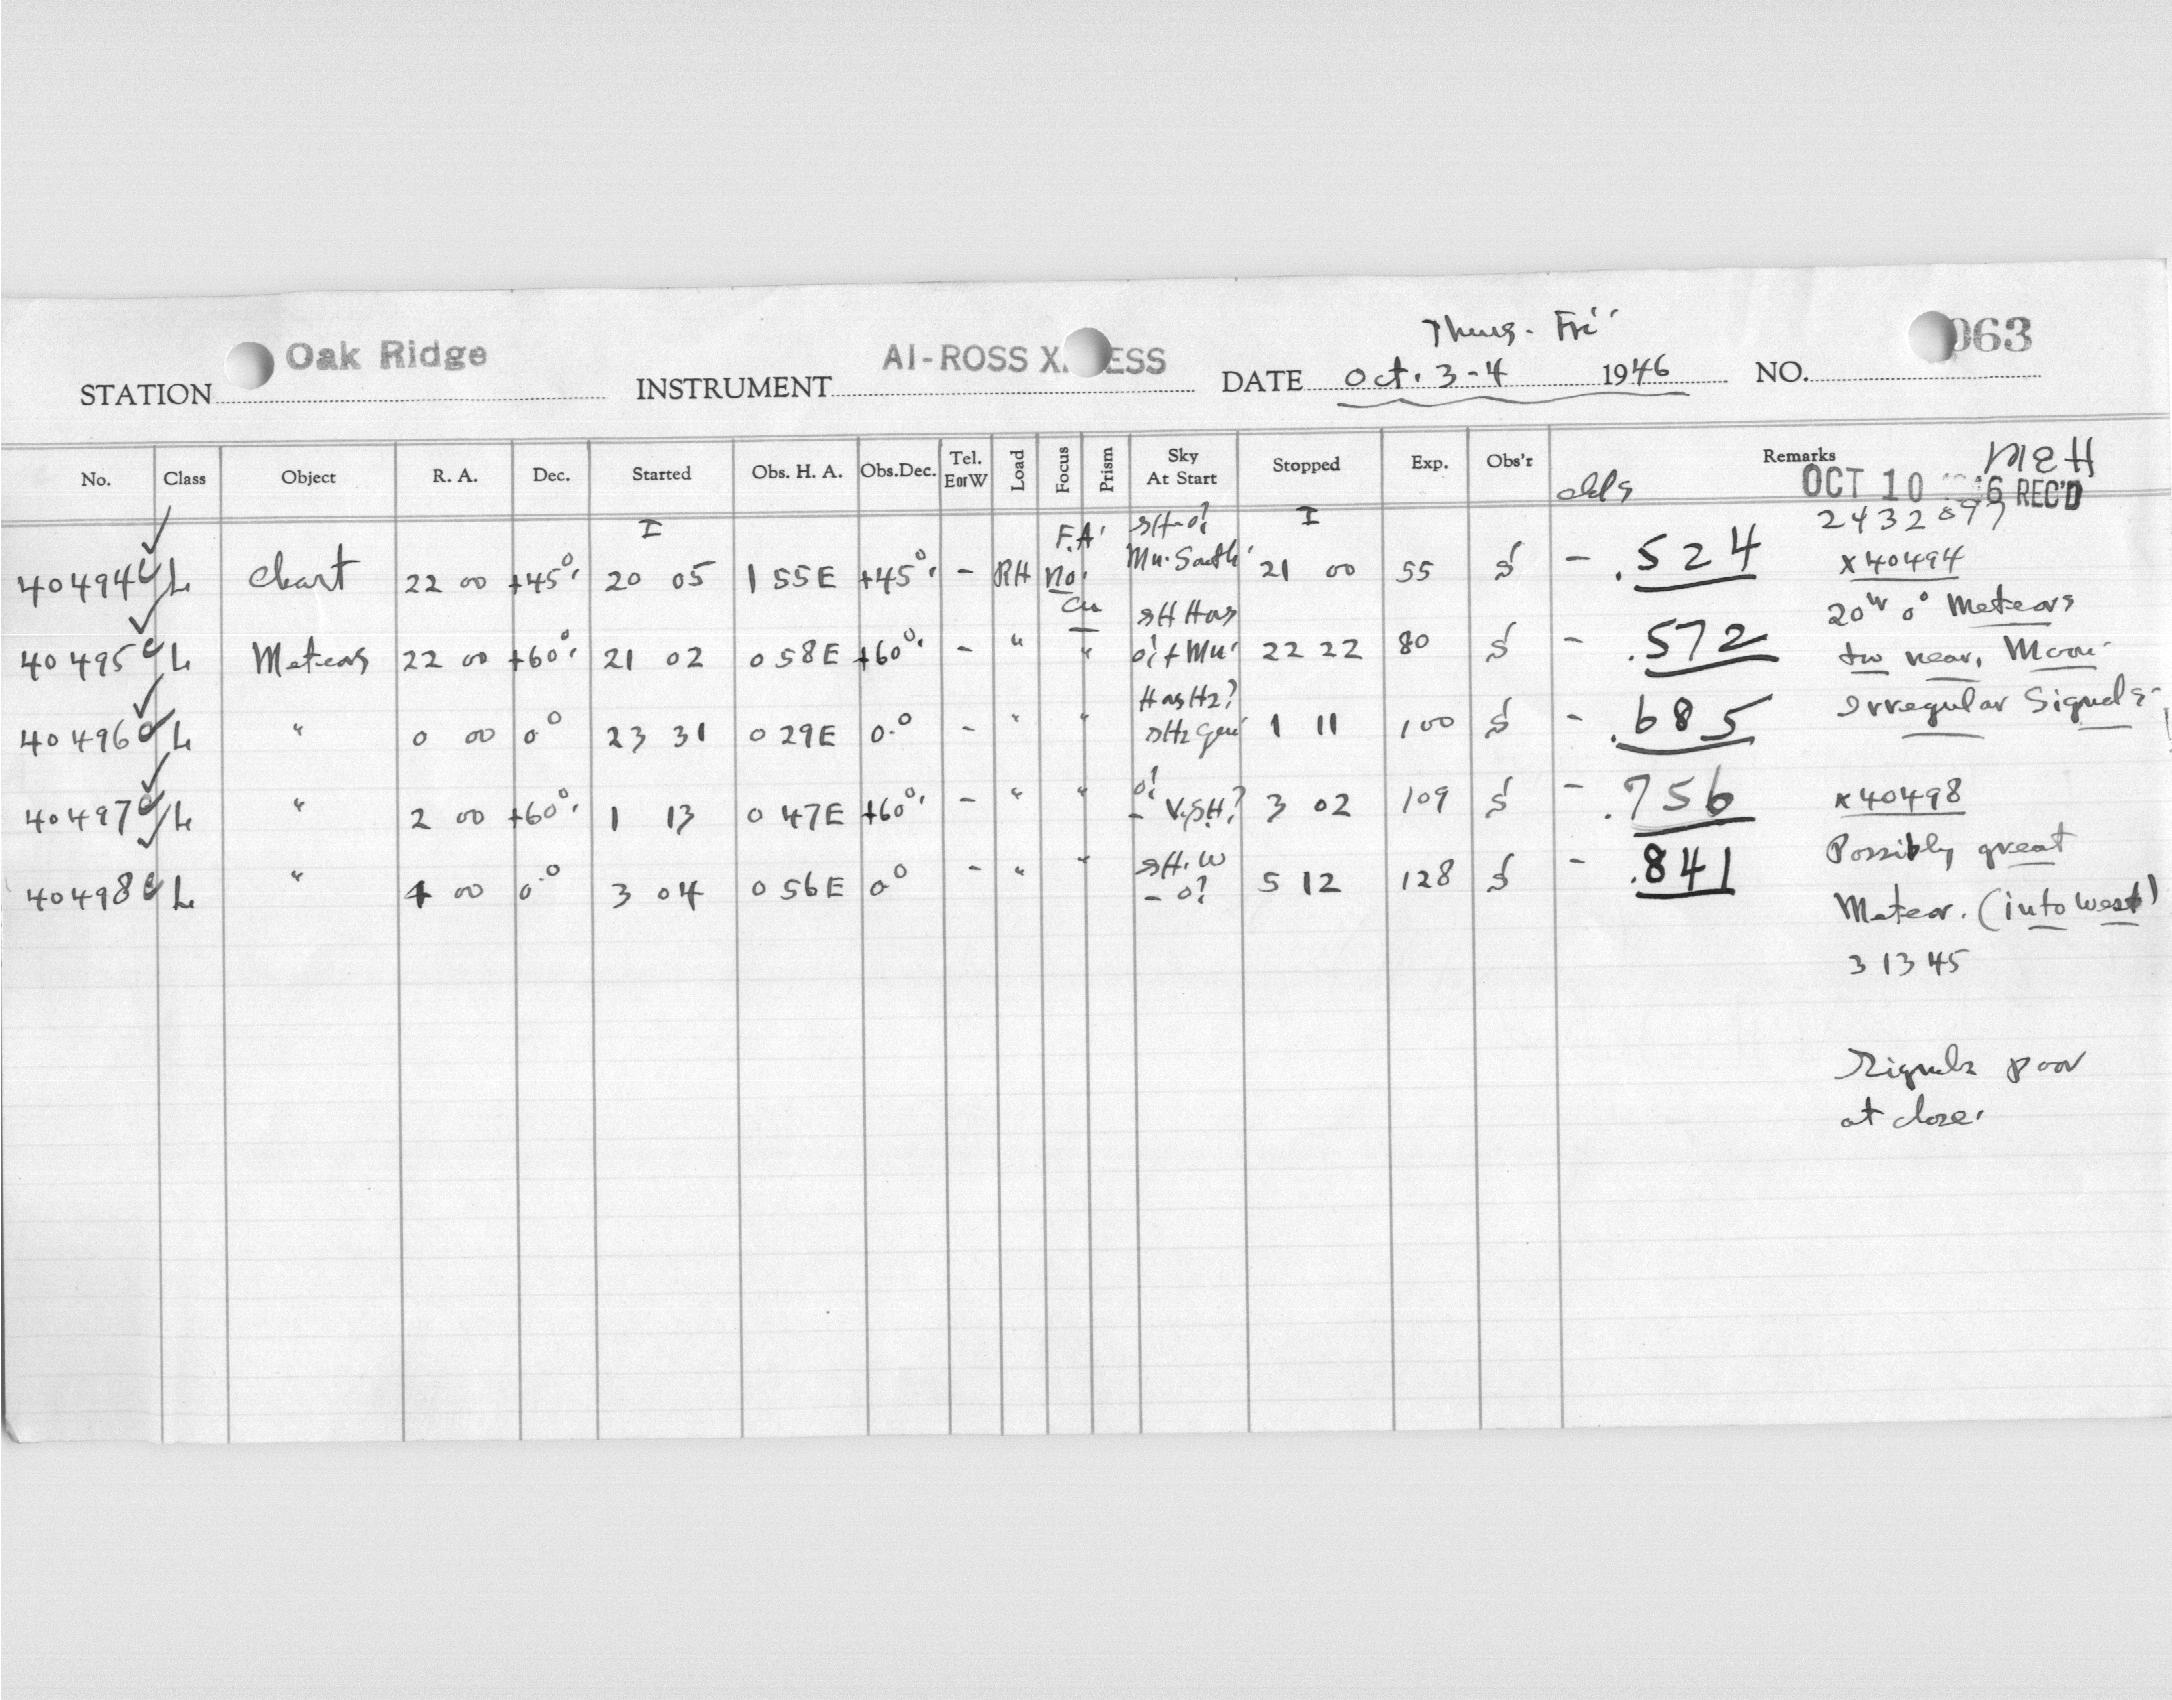 Thurs. Fri.
Oak Ridge AI-ROSS X ESS 063
STATION INSTRUMENT DATE Oct. 3-4 1946 NO.
No. Class Object R. A. Dec. Started Obs. H. A. Obs.Dec. Tel. E or W Load Focus Prism Sky At Start Stopped Exp. Obs'r Remarks
MEH
OCT 10 6 REC'D
I F.A. I 2432097
40494 L Chart 22 00 +45° 20 05 1 55E +45° - RH No. Mn. South 21 00 55 S - .524 x40494
20 W 0° Meteors
40495 L Meteors 22 00 +60° 21 02 0 58E +60° - " " 22 22 80 S - .572 too near, Moon.
Irregular Signals.
40496 L " 0 00 0° 23 31 0 29E 0° - " " 1 11 100 S - .685
40497 L " 2 00 +60° 1 13 0 47E +60° - " " 3 02 109 S - .756 x40498
Possibly great
40498 L " 4 00 0° 3 04 0 56E 0° - " " 5 12 128 S - .841
Meteor. (into west)
3 13 45
Signals poor
at close.